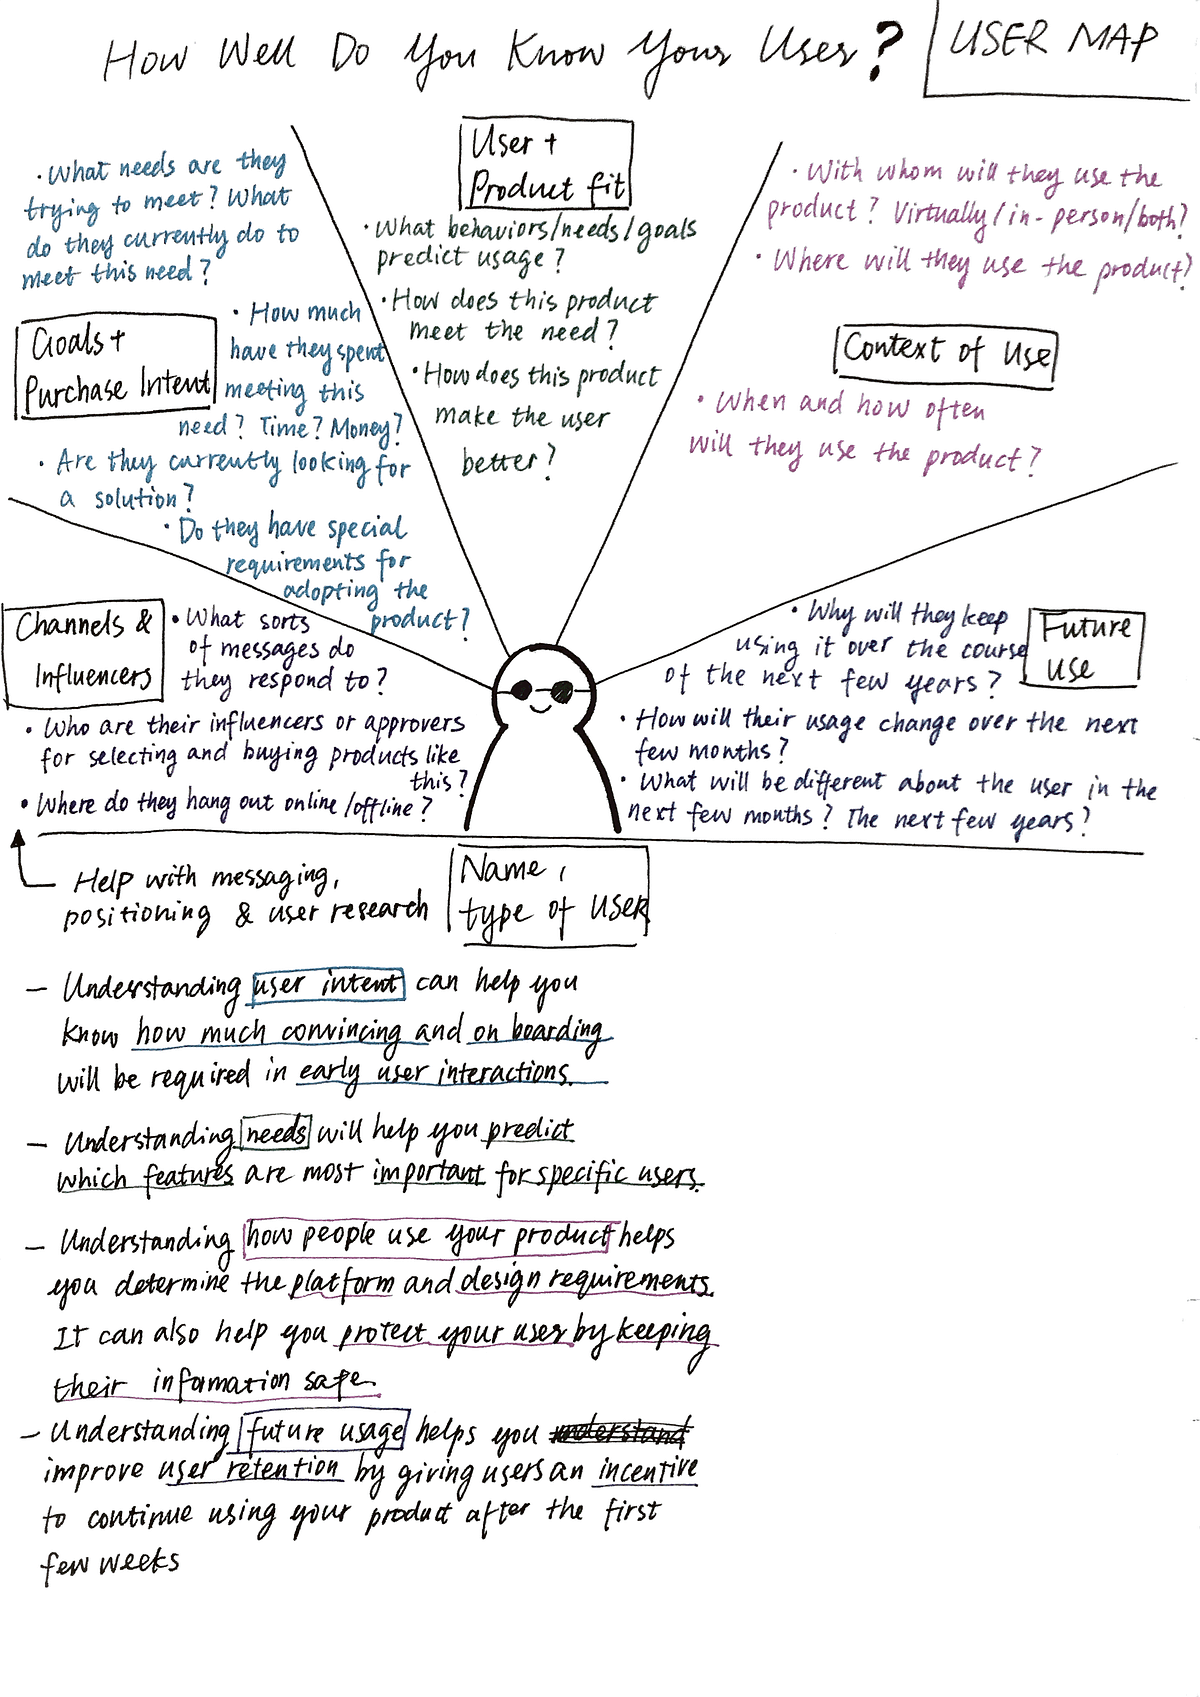 How Well Do You Know Your User?
USER MAP
• What needs are they
trying to meet? What
do they currently do to
meet this need?
Goals +
Purchase Intent
• How much
have they spent
meeting this
need? Time? Money?
• Are they currently looking for
a solution?
• Do they have special
requirements for
adopting the
product?
User +
Product fit
• What behaviors/needs/goals
predict usage?
• How does this product
meet the need?
• How does this product
make the user
better?
• With whom will they use the
product? Virtually/in-person/both?
• Where will they use the product?
Context of Use
• When and how often
will they use the product?
Channels &
Influencers
• What sorts
of messages do
they respond to?
• Who are their influencers or approvers
for selecting and buying products like
this?
• Where do they hang out online/offline?
• Why will they keep
using it over the course
of the next few years?
Future
Use
• How will their usage change over the next
few months?
• What will be different about the user in the
next few months? The next few years?
Help with messaging,
positioning & user research
Name,
type of USER
— Understanding user intent can help you
know how much convincing and on boarding
will be required in early user interactions.
— Understanding needs will help you predict
which features are most important for specific users.
— Understanding how people use your product helps
you determine the platform and design requirements.
It can also help you protect your user by keeping
their information safe.
— Understanding future usage helps you understand
improve user retention by giving users an incentive
to continue using your product after the first
few weeks